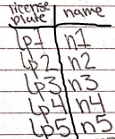 license plate | name
lp1 | n1
lp2 | n2
lp3 | n3
lp4 | n4
lp5 | n5